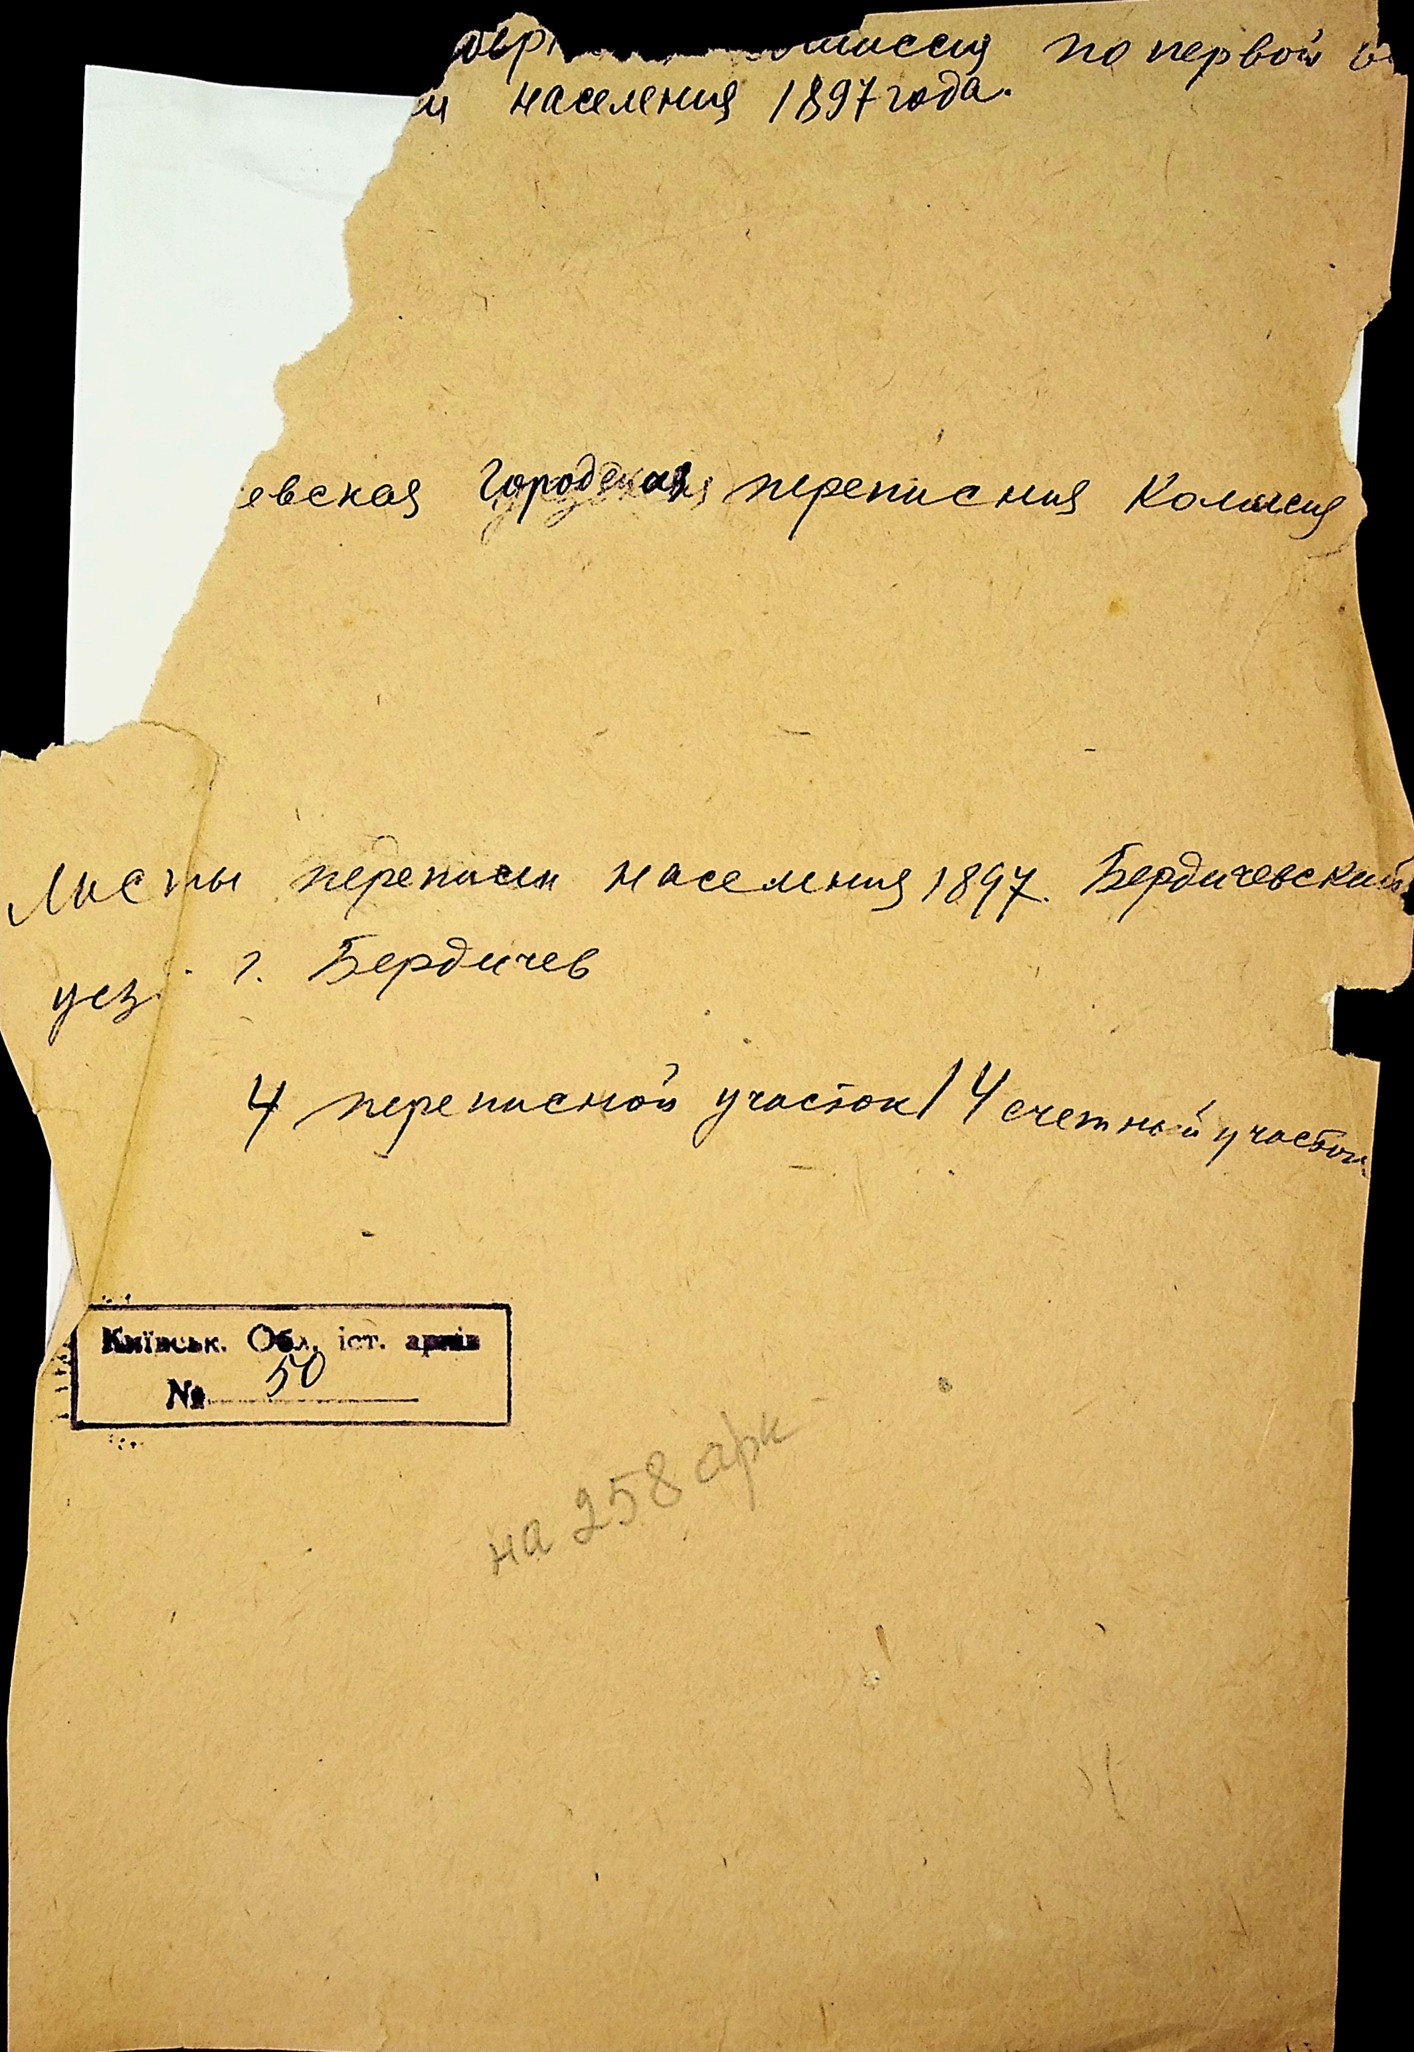 по первой
населения 1897 года.
евская городская переписная Комисия
Листы переписи населения 1897. Бердичевский
уез г. Бердичев
4 переписной участок 14 счетный участок
Київськ. Обл. іст. архів
№ 50
на 258 арк